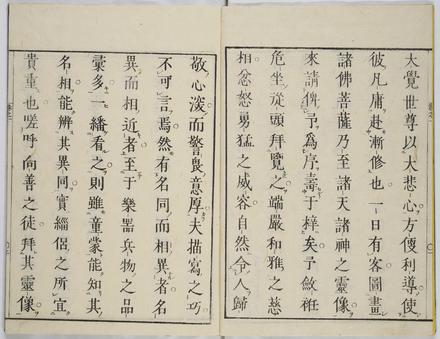 大覺世尊以大悲心方便利導使
彼凡庸赴漸修也一日有客圖畫
諸佛菩薩乃至諸天諸神之靈像
來請俾予為序壽于梓矣予斂衽
危坐從頭拜覽之端嚴和雅之慈
相忿怒勇猛之威容自然令人歸
敬心深而警畏意厚夫描寫之巧
不可言焉然有名同而相異者名
異而相近者至于樂器兵物之品
彙多一繙看之則雖童蒙能知其
名相能辨其異同實緇侶之所宜
貴重也嗟呼向善之徒拜其靈像